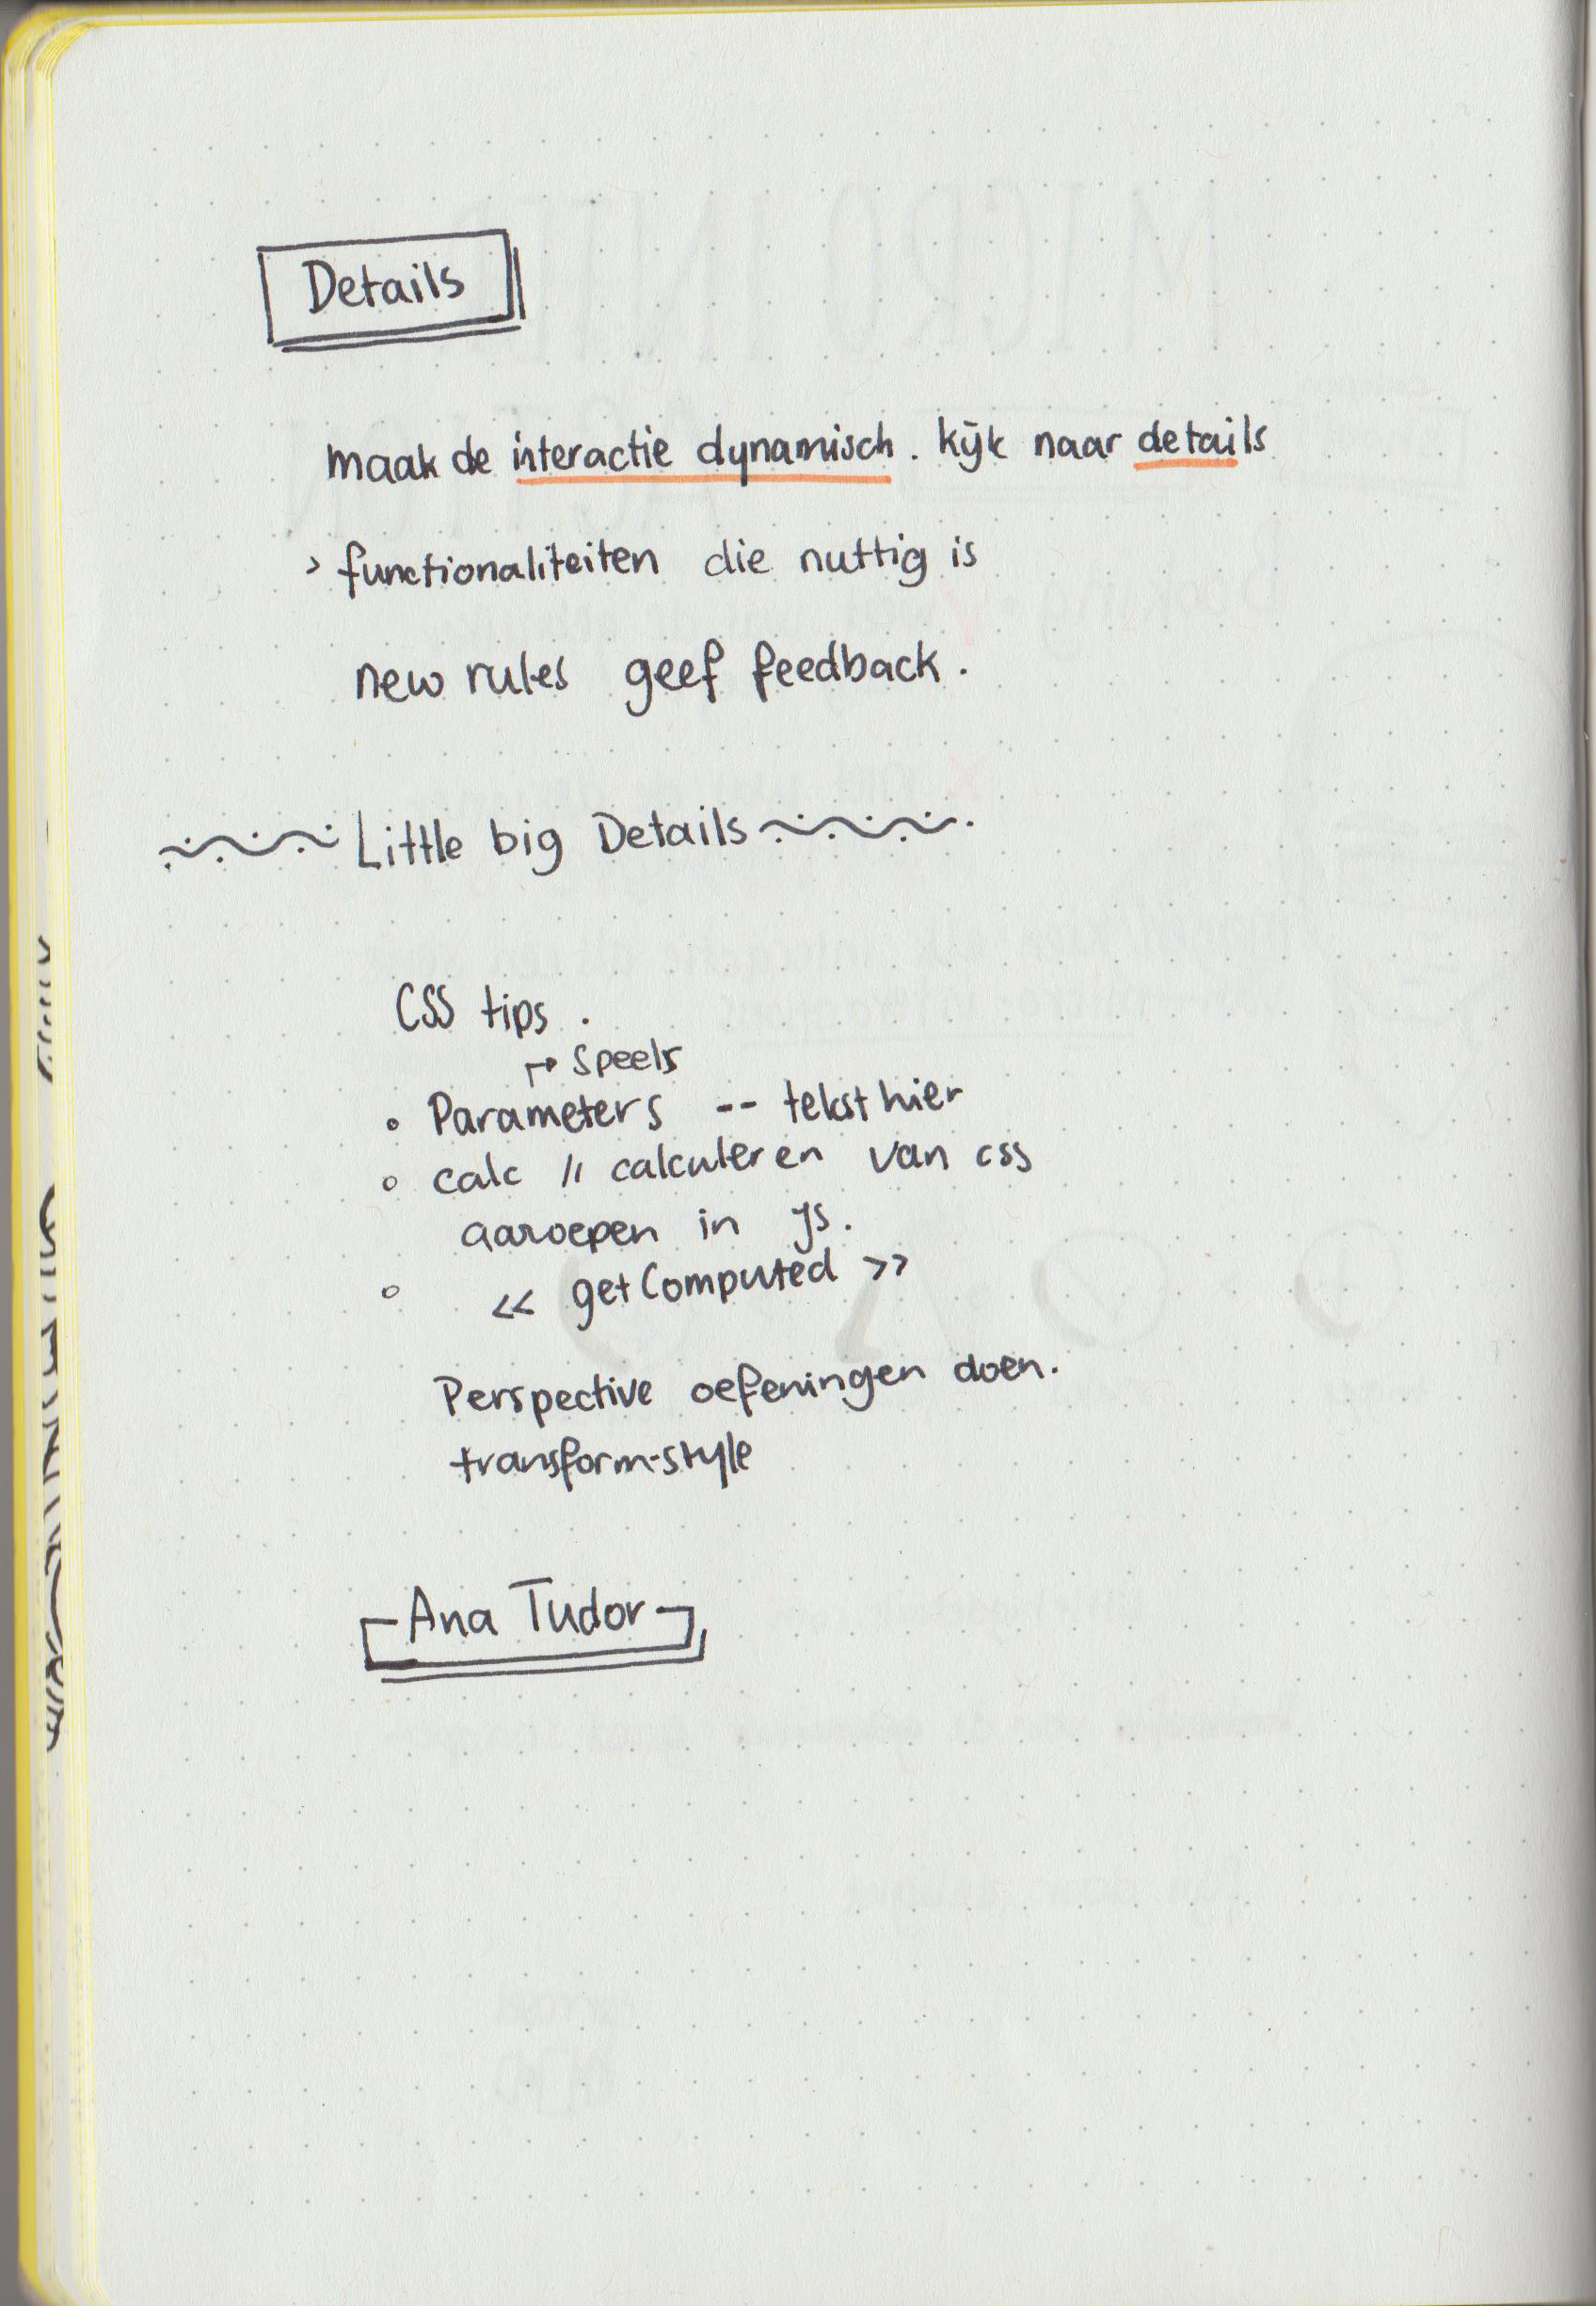 Details
maak de interactie dynamisch. kijk naar details
> functionaliteiten die nuttig is
new rules geef feedback.
Little big Details
CSS tips.
↱ Speels
• Parameters -- tekst hier
• calc // calculeren van css
aaroepen in JS.
• << getComputed >>
Perspective oefeningen doen.
transform-style
Ana Tudor